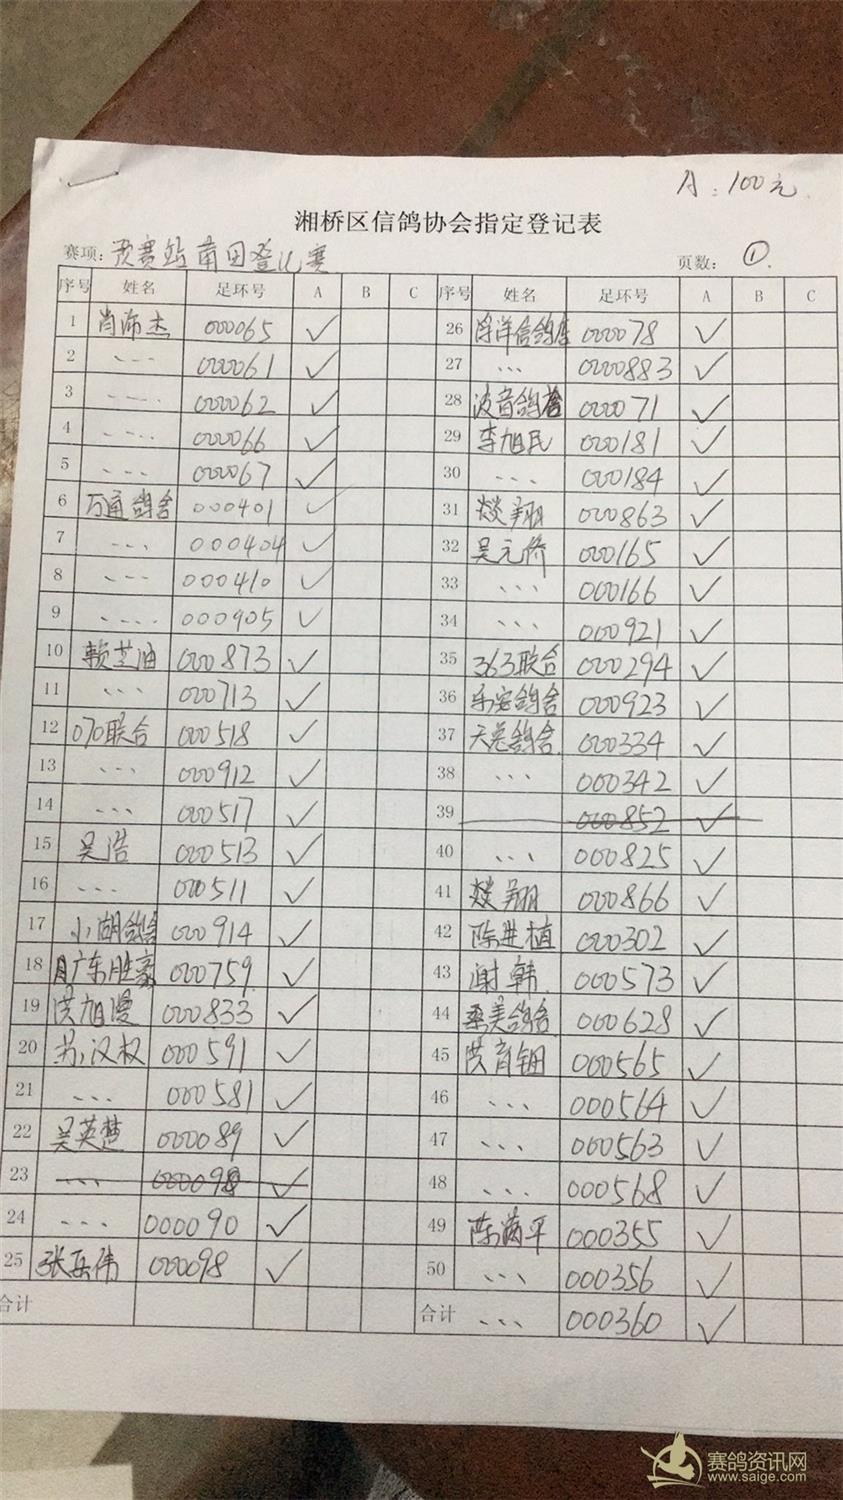 A：100元
湘桥区信鸽协会指定登记表
赛项：预赛站莆田登记赛 页数：①
序号 姓名 足环号 A B C 序号 姓名 足环号 A B C
1 肖沛杰 000065 ✓ 26 浮洋信鸽店 000078 ✓
2 、、、 000061 ✓ 27 、、、 0000883 ✓
3 、、、 000062 ✓ 28 波音鸽舍 000071 ✓
4 、、、 000066 ✓ 29 李旭民 000181 ✓
5 、、、 000067 ✓ 30 、、、 000184 ✓
6 万通鸽舍 000401 ✓ 31 燚翔 000863 ✓
7 、、、 000404 ✓ 32 吴元侨 000165 ✓
8 、、、 000410 ✓ 33 、、、 000166 ✓
9 、、、、 000905 ✓ 34 、、、 000921 ✓
10 赖芝油 000873 ✓ 35 363联合 000294 ✓
11 、、、 000713 ✓ 36 乐安鸽舍 000923 ✓
12 070联合 000518 ✓ 37 天苑鸽舍 000334 ✓
13 、、、 000912 ✓ 38 、、、 000342 ✓
14 、、、 000517 ✓ 39 000852 ✓
15 吴浩 000513 ✓ 40 、、、 000825 ✓
16 、、、 000511 ✓ 41 燚翔 000866 ✓
17 小胡鸽舍 000914 ✓ 42 陈进植 000302 ✓
18 广东胜豪 000759 ✓ 43 谢韩 000573 ✓
19 洪旭漫 000833 ✓ 44 美鸽舍 000628 ✓
20 苏汉权 000591 ✓ 45 洪育钿 000565 ✓
21 、、、 000581 ✓ 46 、、、 000564 ✓
22 吴英楚 000089 ✓ 47 、、、 000563 ✓
23 、、、 000098 ✓ 48 、、、 000568 ✓
24 、、、 000090 ✓ 49 陈平 000355 ✓
25 张岳伟 000098 ✓ 50 、、、 000356 ✓
合计 合计 、、、 000360 ✓
赛鸽资讯网
www.saige.com